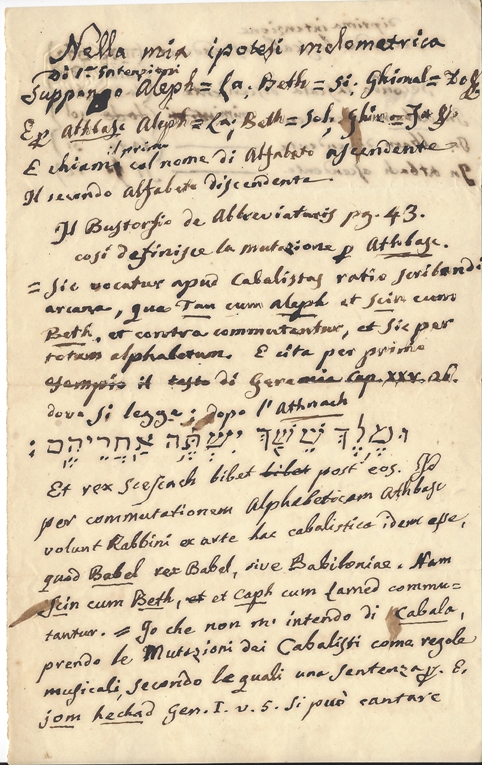 Nella mia ipotesi melometrica
Di 1ª Intenzione
Suppongo Aleph = La; Beth = Si; Ghimal = Do &
E p Athbasc Aleph = La; Beth = Sol; = Fa &
il primo
E chiamo col nome di Alfabeto ascendente
Il secondo Alfabeto discendente.
Il Bustorfio de Abbreviaturis pg. 43.
così definisce la mutazione p Athbasc.
= Sic vocatur apud Cabalistas ratio scribendi
arcana, qua Tau cum aleph et Scin cum
Beth, et contra commutantur, et sic per
totum alphabetum. E cita per primo
esempio il testo di Geremia Cap. XXV. 26.
dove si legge; dopo l'Athnach
וּמֶלֶךְ שֵׁשַׁךְ יִשְׁתֶּה אַחֲרֵיהֶֽם׃
Et rex Scescach bibet bibet post eos.
per commutationem Alphabeticam Athbasc
volunt Rabbini ex arte hac cabalistica idem esse,
quod Babel rex Babel, sive Babiloniae. Nam
Scin cum Beth, et et Caph cum Lamed commu-
tantur. = Io che non m'intendo di Cabala,
prendo le Mutazioni dei Cabalisti come regole
musicali, secondo le quali una sentenza p. E.
jom hechad Gen. I. v. 5. si può cantare